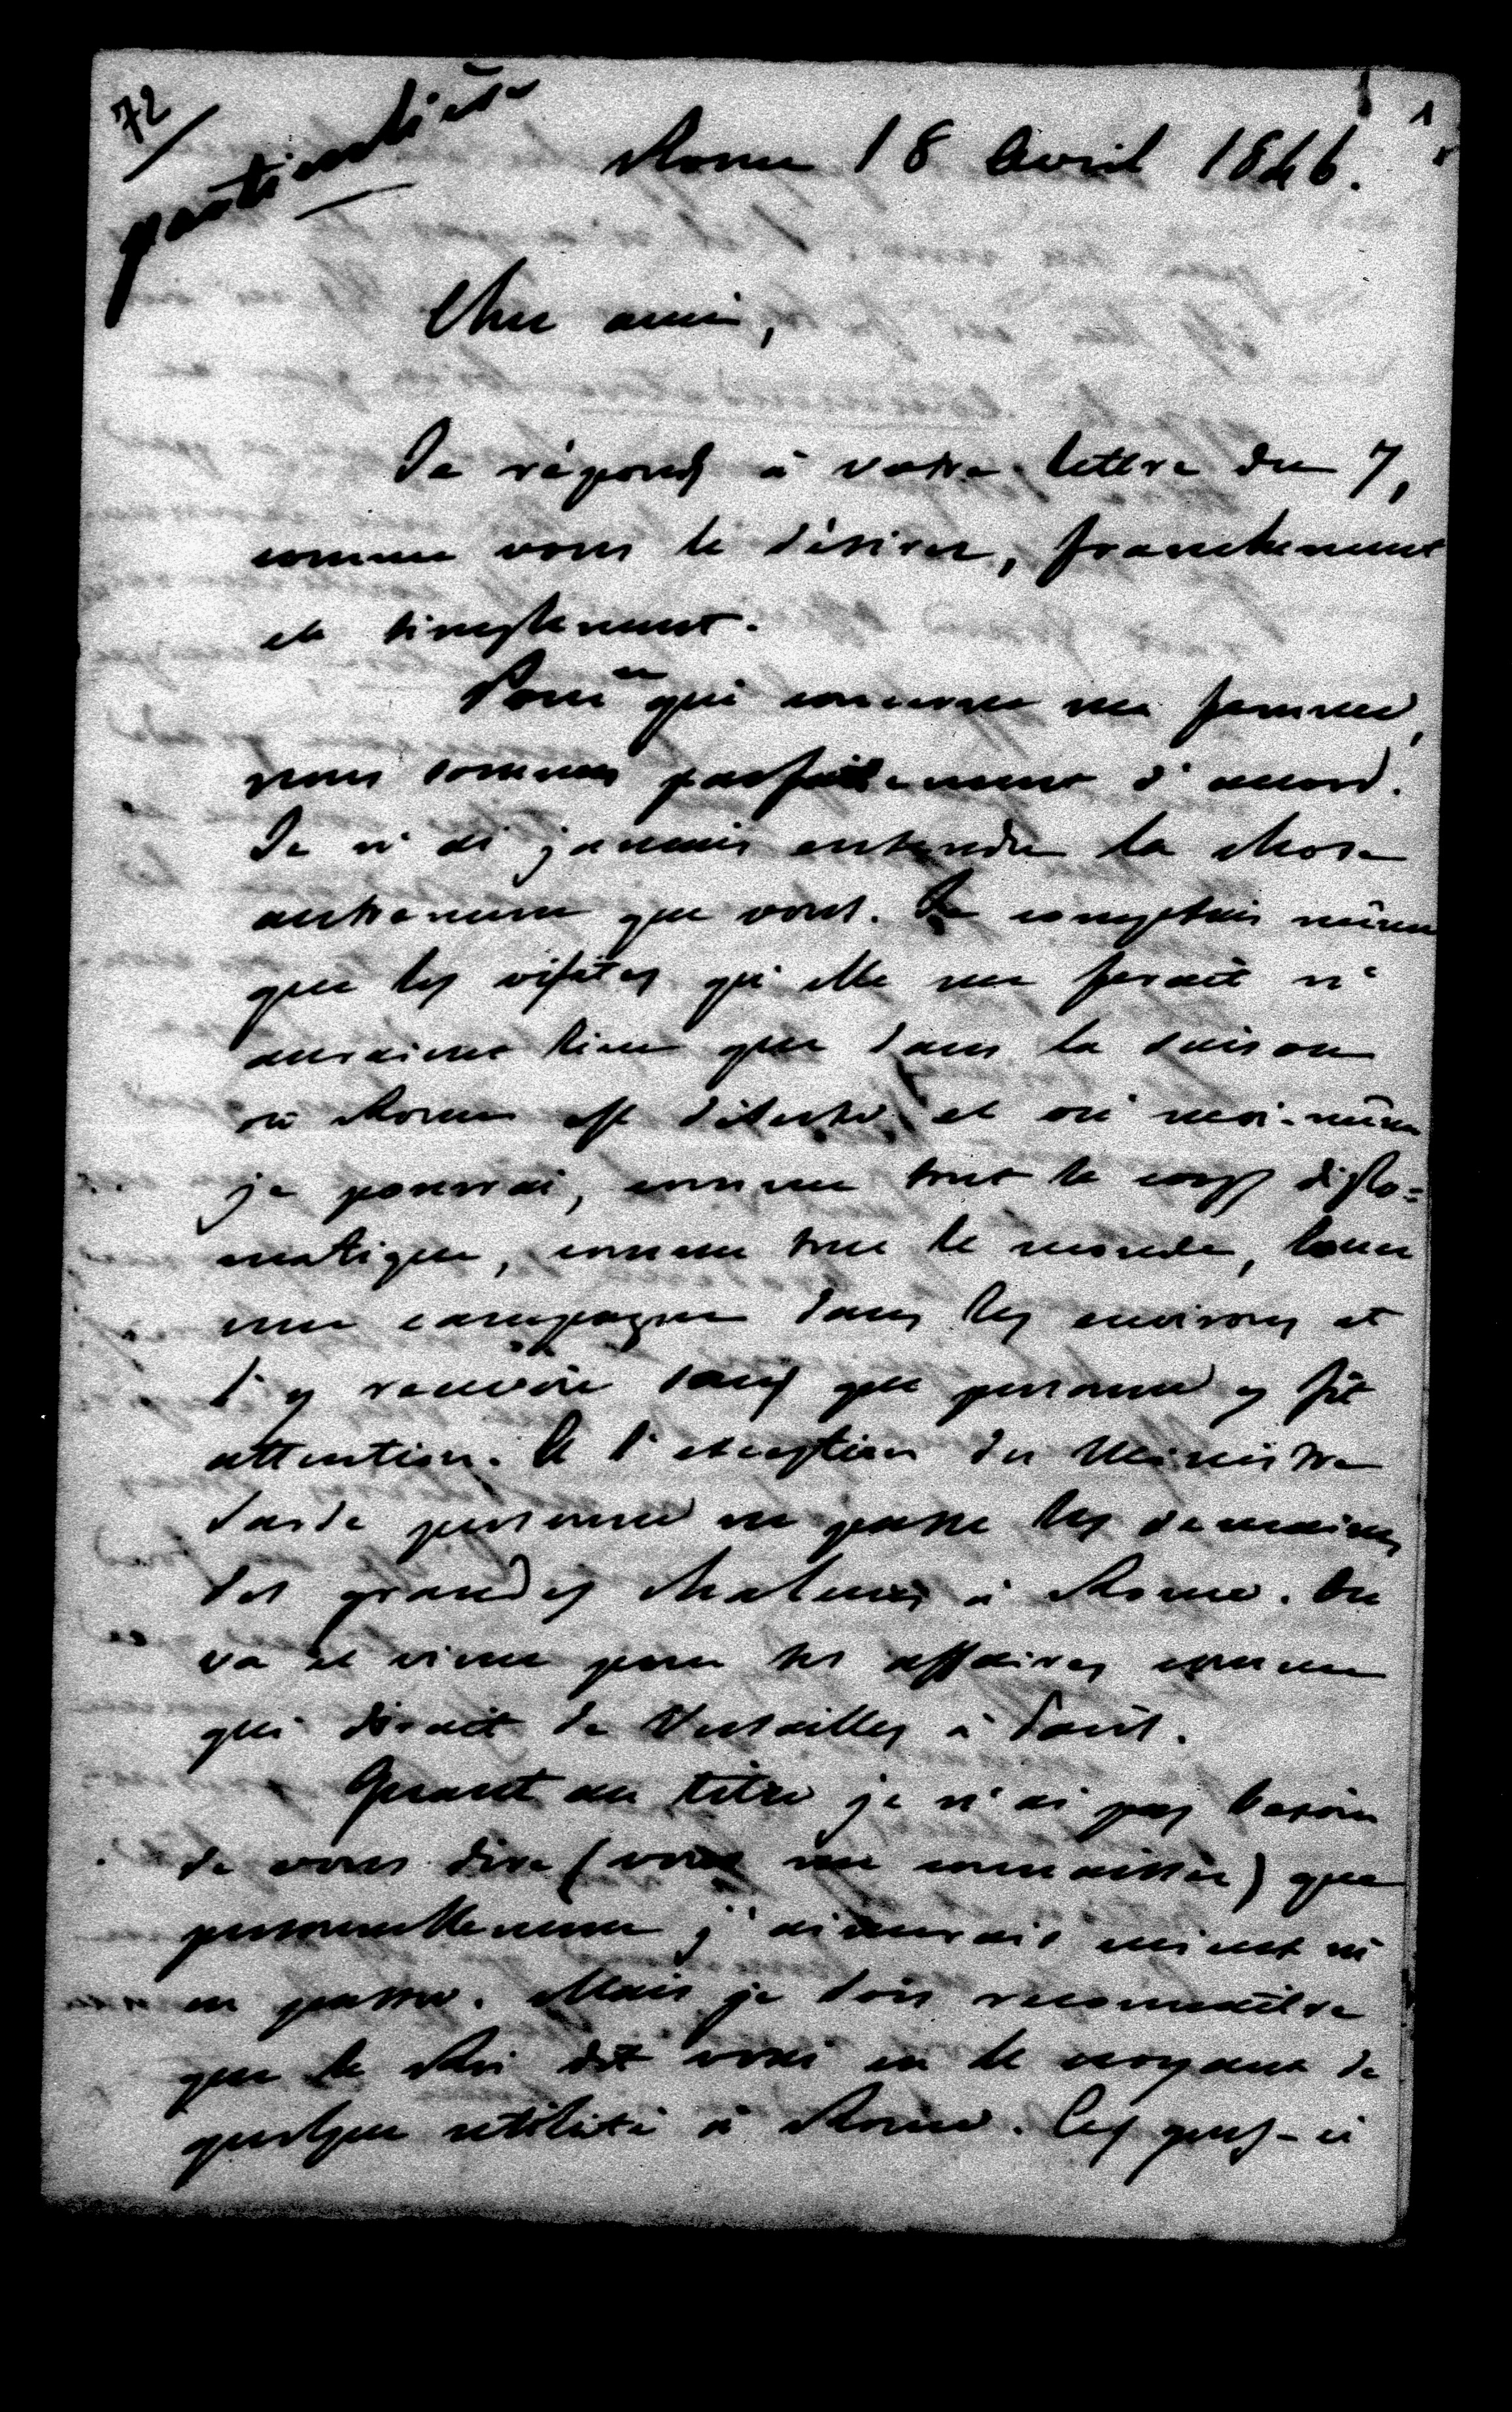 72
particulière
1
Rome 18 Avril 1846.
Cher ami,
Je réponds à votre lettre du 7,
comme vous le désirez, franchement
et simplement.
Pour ce qui concerne ma femme,
nous sommes parfaitement d'accord.
Je n'ai jamais entendu la chose
autrement que vous. Je comptais même
que les visites qu'elle me ferait n'
auraient lieu que dans la saison
où Rome est déserte, et où moi-même
je pourrai, comme tout le corps diplo=
matique, comme tout le monde, louer
une campagne dans les environs et
l'y recevoir sans que personne y fît
attention. A l'exception du Ministre
Sarde personne ne passe les semaines
des grandes chaleurs à Rome. On
va et vient pour ses affaires comme
qui dirait de Versailles à Paris.
Quant au titre je n'ai pas besoin
de vous dire (vous me connaissez) que
personnellement j'aimerais mieux m'
en passer. Mais je dois reconnaître
que le Roi dit vrai en le croyant de
quelque utilité à Rome. Ces gens-ci